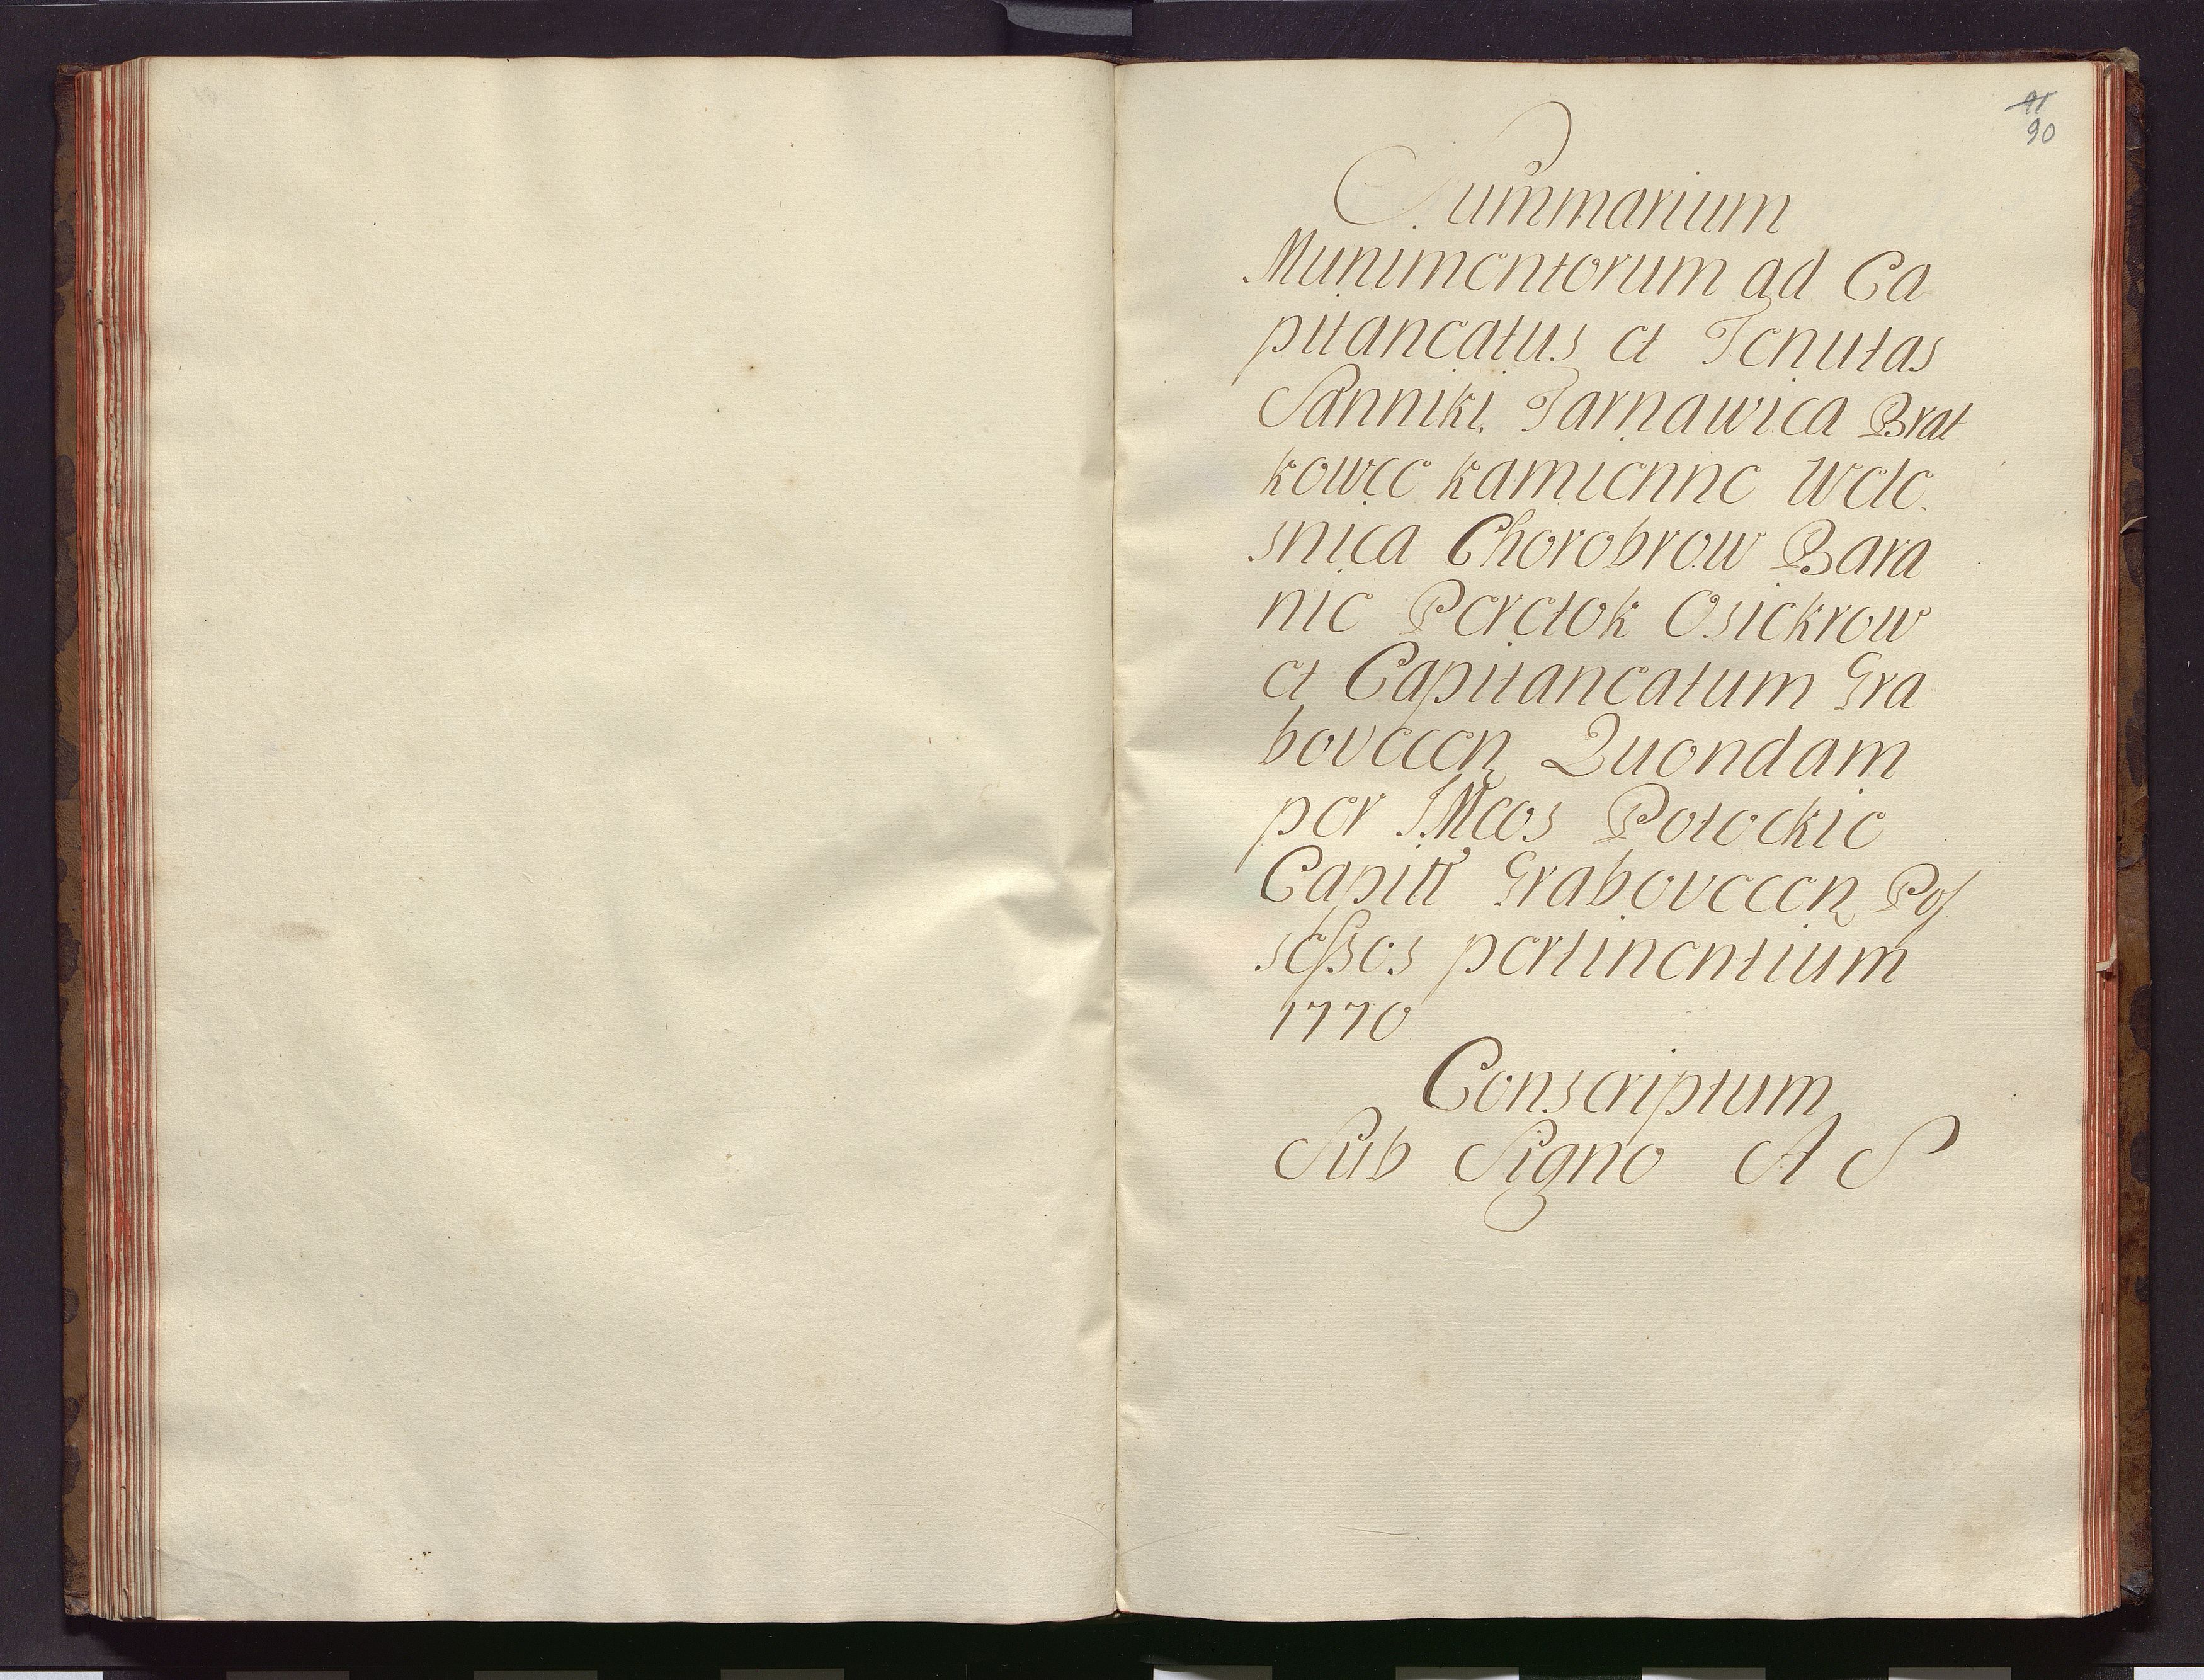 91
90
Summarium
Munimentorum ad Ca
pitaneatus et Tenutas
Sanniki, Tarnawica Brat
kowce kamienne Wele.
snica Chorobrow Bara
nie Peretok Osiekrow
et Capitaneatum Gra
boveceen Quondam
per IMcos Potockie
Capitt Graboveceen Pos
sessos pertinentium
1770
Conscriptum
Sub Signo A S